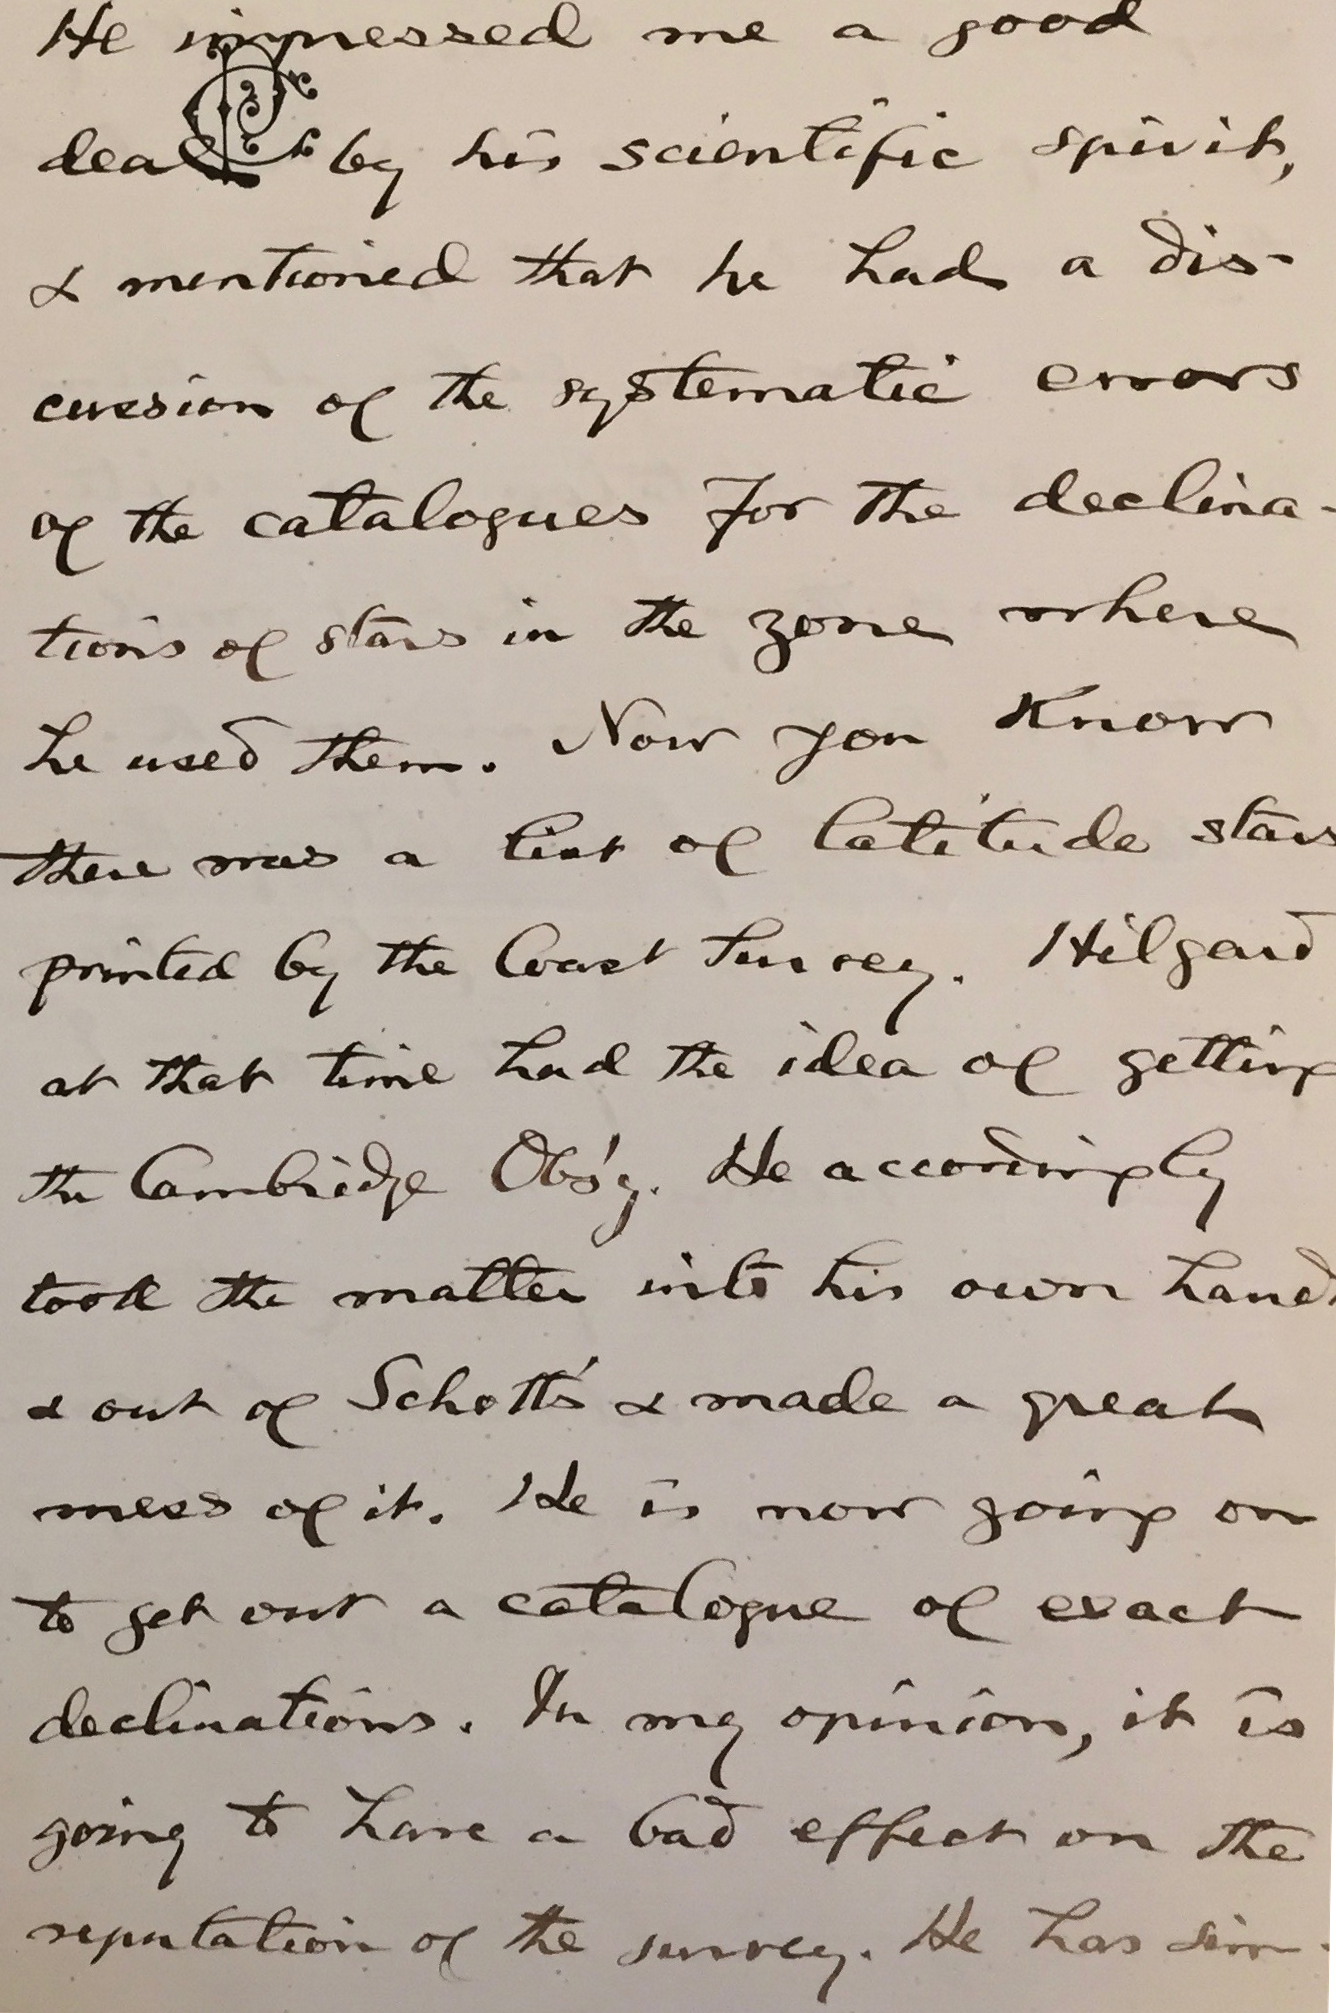 He impressed me a good
deal by his scientific spirit,
& mentioned that he had a dis-
cussion of the systematic errors
of the catalogues for the declina-
tions of stars in the zone where
he used them. Now you know
there was a list of latitude stars
printed by the Coast Survey. Hilgard
at that time had the idea of getting
the Cambridge Obs'y. He accordingly
took the matter into his own hands
& out of Schott's & made a great
mess of it. He is now going on
to get out a catalogue of exact
declinations. In my opinion, it is
going to have a bad effect on the
reputation of the survey. He has sim-